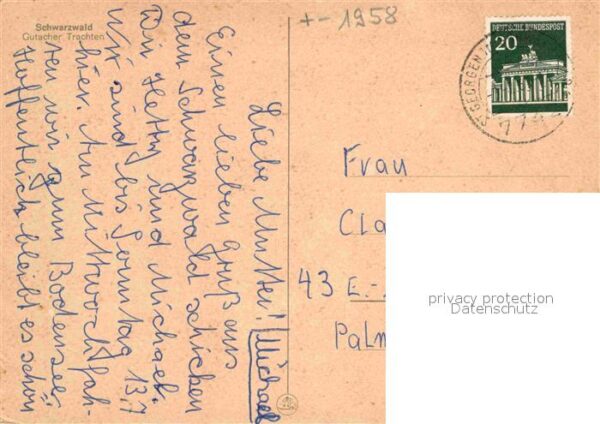 Schwarzwald
Gutacher Trachten
+- 1958
Liebe Mutter!
Einen lieben Gruß aus
dem Schwarzwald schicken
Dir Hetty und Michael.
Wir sind bis Sonntag 13.7
hier. Am Mittwoch fah-
ren wir zum Bodensee.
Hoffentlich bleibt es schön
Michael
DEUTSCHE BUNDESPOST
20
ST GEORGEN
Frau
Cla
43 E.-
Palm
privacy protection
Datenschutz